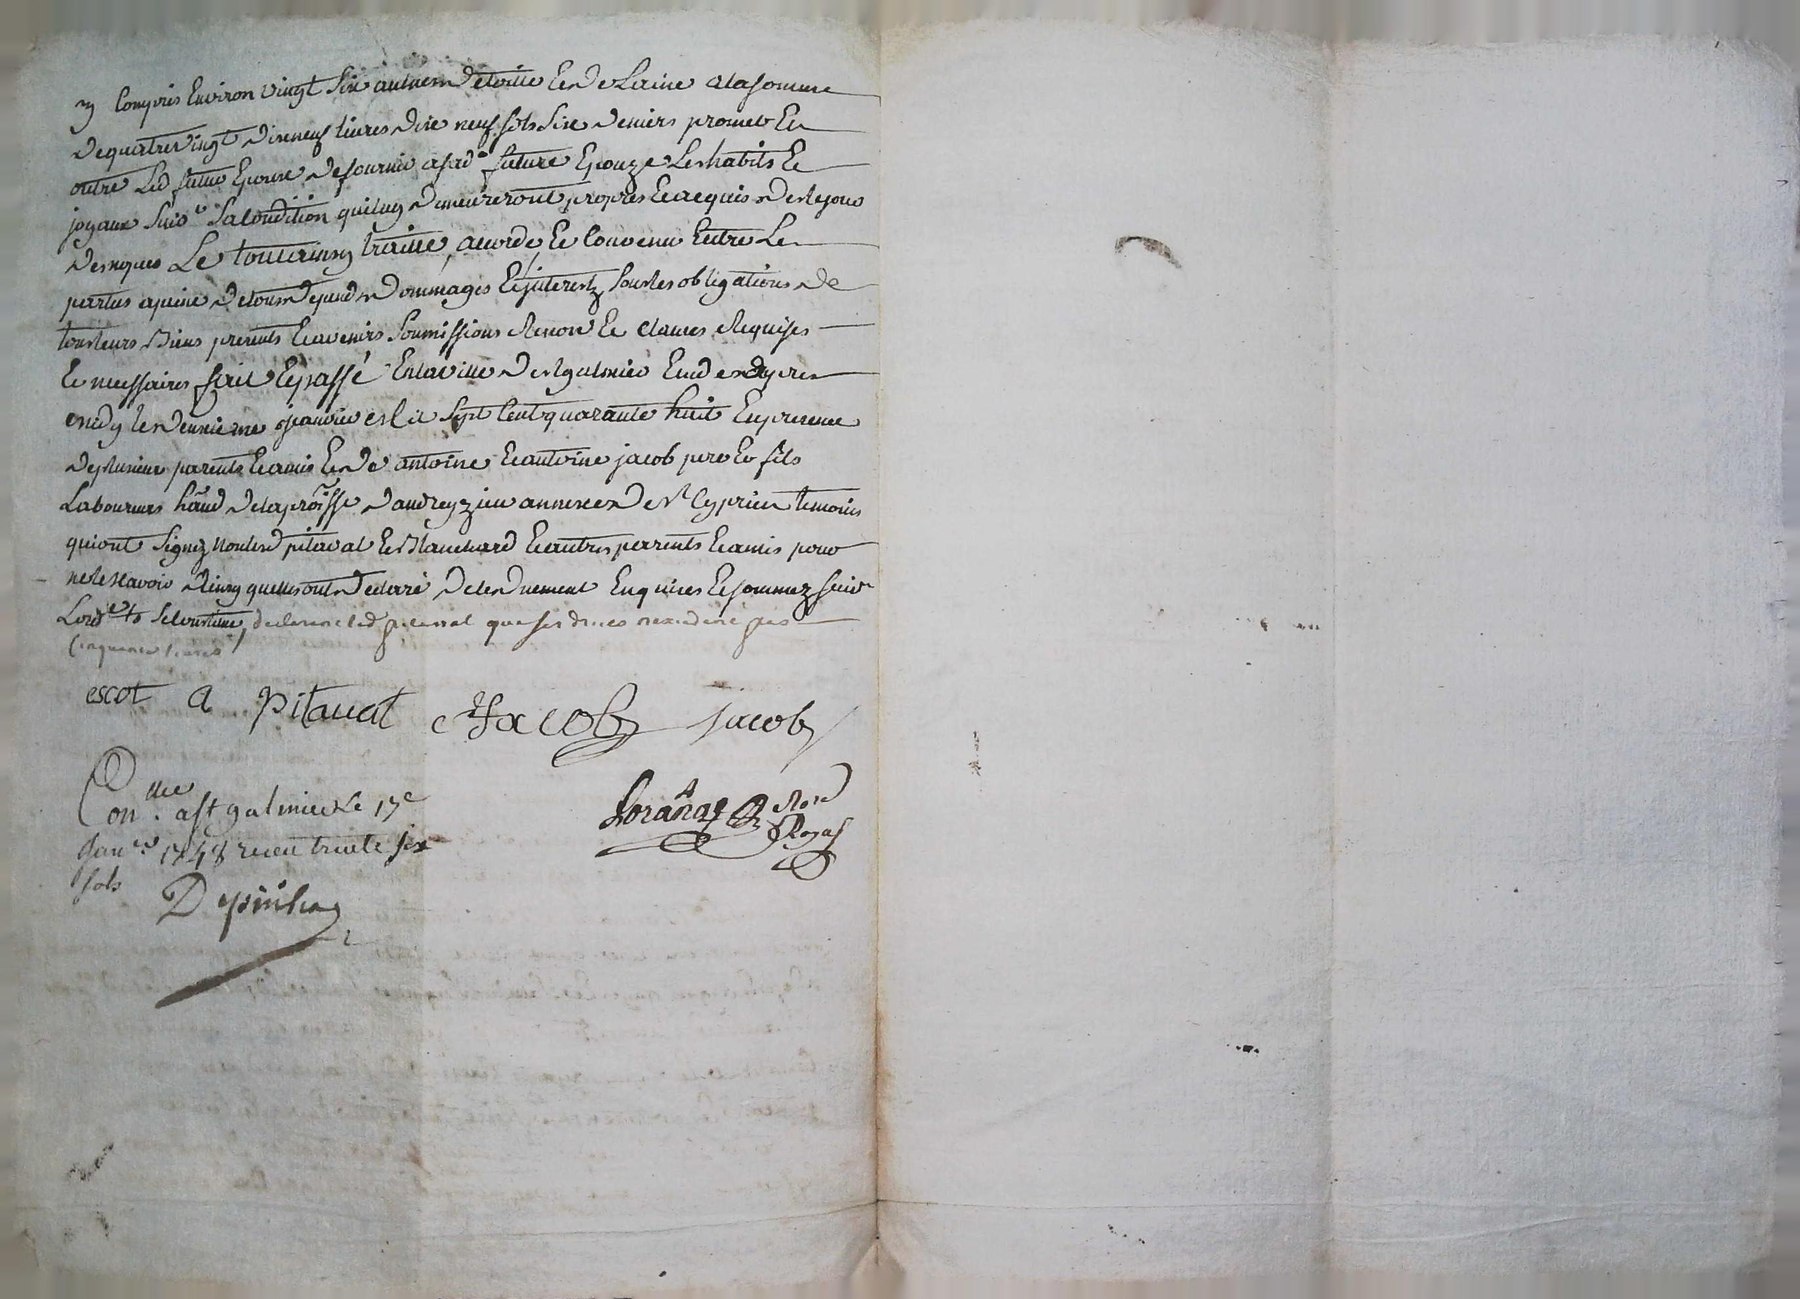 y Compris Environ vingt Six aulnes de toille Et de Laine a la somme
de quatre vingt dix neuf livres dix neuf sols Six deniers promet En
outre Led futur Epoux de fournir a sad.e future Epouze Les habits Et
joyaux Suiv.t Sa Condition qui luy demeureront propres Et acquis des le jour
des nopces Le tout ainsy traitté, accordé Et Convenu Entre Les
parties a peine de tous depends dommages Et jnterests, Sous les obligations de
tous leurs Biens presents Et avenirs Soumissions Renon.s Et clauses Requises
Et necessaires fait Et passé En la ville de St galmier Etude apres
midy le neuvieme janvier mil sept Cent quarante huit En presence
de plusieurs parents Et amis Et de antoine Et antoine jacob pere Et fils
Laboureurs de la proisse d'andrezieu annexe de St Cyprien temoins
qui ont Signez non led pitaval Et Blanchard Et autres parents Et amis pour
ne le scavoir ainsy quelles ont declaré de ce duement Enquises Et sommez Suiv.t
Lord.ce declarant led pitaval que ses droits nexcedent pas
Cinquante livres
escot A Pitaval Jacob jacob
Con.lle a St galmier Le 17e
Janv.er 1748 receu trente six
sols
Depinhac